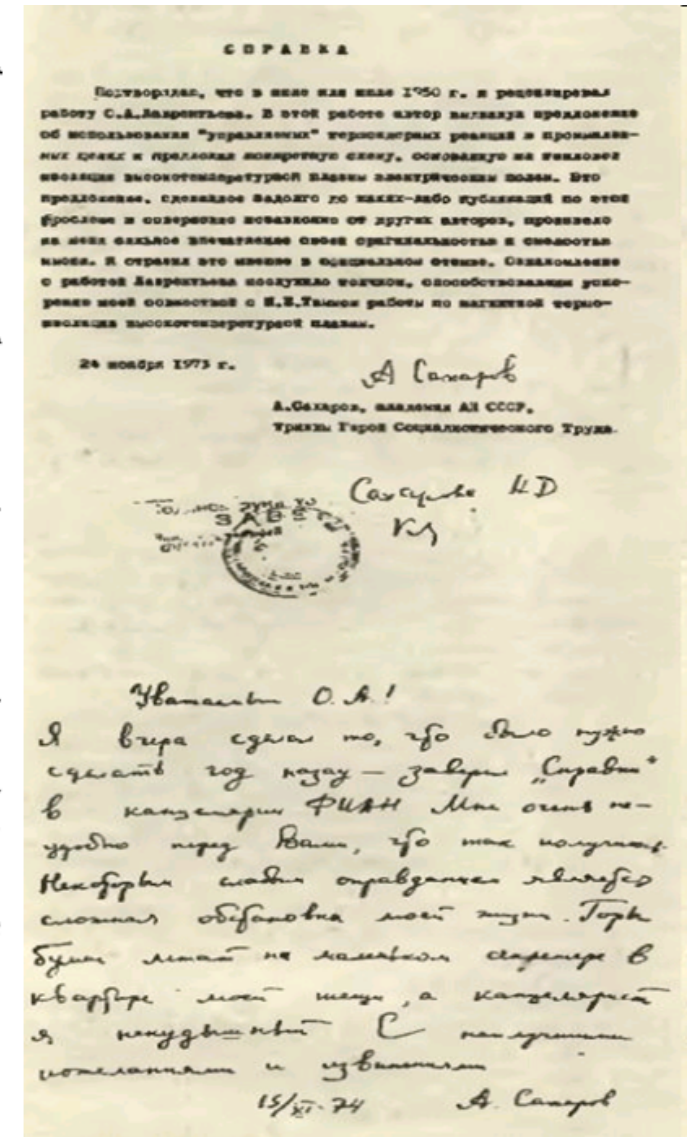 СПРАВКА
Подтверждаю, что в июне или июле 1950 г. я рецензировал
работу О.А.Лаврентьева. В этой работе автор выдвинул предложение
об использовании "управляемых" термоядерных реакций в промышлен-
ных целях и предложил конкретную схему, основанную на тепловой
изоляции высокотемпературной плазмы электрическим полем. Это
предложение, сделанное задолго до каких-либо публикаций по этой
проблеме и совершенно независимо от других авторов, произвело
на меня сильное впечатление своей оригинальностью и смелостью
мысли. Я отразил это мнение в официальном отзыве. Ознакомление
с работой Лаврентьева послужило толчком, способствовавшим уско-
рению моей совместной с И.Е.Таммом работы по магнитной термо-
изоляции высокотемпературной плазмы.
24 ноября 1973 г.
А Сахаров
А.Сахаров, академик АН СССР,
трижды Герой Социалистического Труда.
Сахарова
ЗАВ
Уважаемый О.А!
Я вчера сделал то, что было нужно
сделать год назад — заверил „Справку“
в канцелярии ФИАН Мне очень не-
удобно перед Вами, что так получилось.
Некоторым слабым оправданием является
сложная обстановка моей жизни. Горы
бумаг лежат на маленьком секретере в
квартире моей тещи, а канцелярист
я никудышный С наилучшими
пожеланиями и извинениями
15/XI-74 А. Сахаров